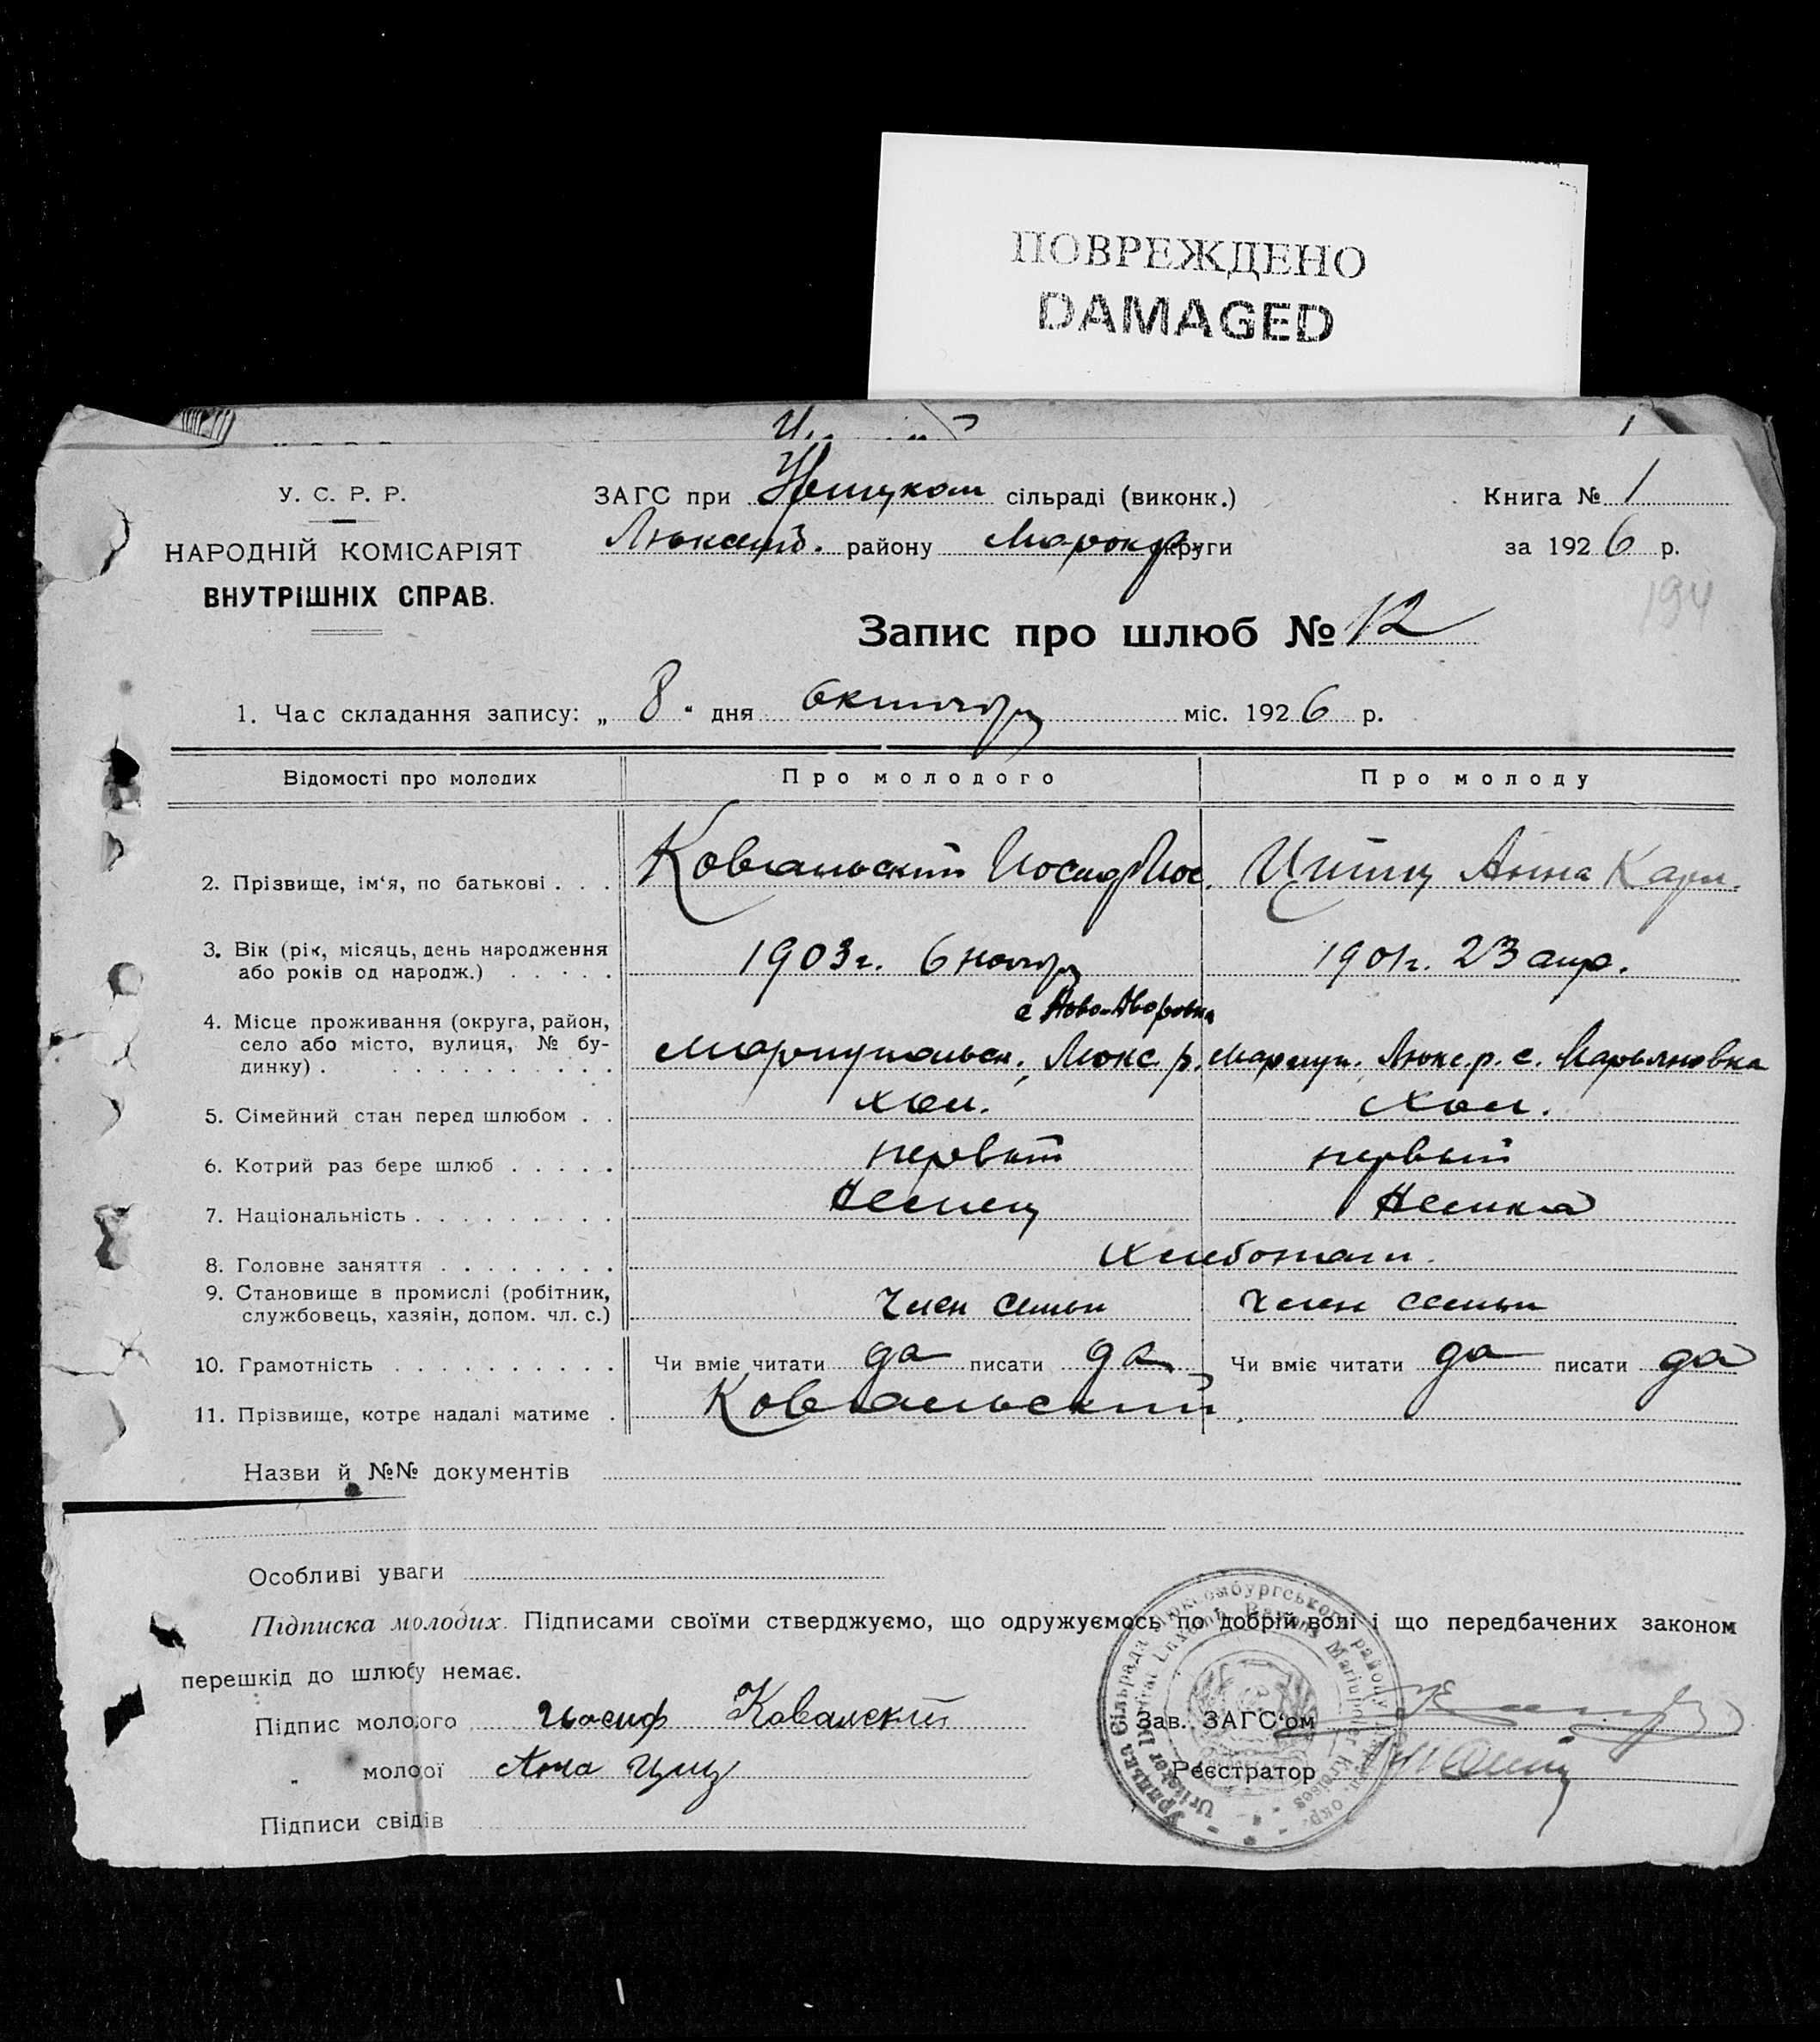 ПОВРЕЖДЕНО
DAMAGED
У. С. Р. Р.
НАРОДНІЙ КОМІСАРІЯТ
ВНУТРІШНІХ СПРАВ.
ЗАГС при Урицком сільраді (виконк.)
Люксемб. району Марокр. округи
Книга № 1
за 1926 р.
194
Запис про шлюб № 12
1. Час складання запису: „ 8 " дня октября міс. 1926 р.
Відомості про молодих Про молодого Про молоду
2. Прізвище, ім'я, по батькові . . . Ковальский Иосиф Иос. Цитц Анна Карл.
3. Вік (рік, місяць, день народження
або років од народж.) . . . . . 1903 г. 6 ноября 1901 г. 23 апр.
с Ново-Дворовка
4. Місце проживання (округа, район,
село або місто, вулиця, № бу-
динку) . . . . . . . . . . Мариупольск., Люкс. р. Мариуп. Люкс. р. с. Марьяновка
5. Сімейний стан перед шлюбом . . хол. хол.
6. Котрий раз бере шлюб . . . . . первый первый
7. Національність . . . . . . . . . Немец Немка
8. Головне заняття . . . . . . . . хлебопаш.
9. Становище в промислі (робітник,
службовець, хазяїн, допом. чл. с.) член семьи член семьи
10. Грамотність . . . . . . . . . . Чи вміє читати да писати да Чи вміє читати да писати да
11. Прізвище, котре надалі матиме . Ковальский.
Назви й №№ документів
Особливі уваги
Підписка молодих. Підписами своїми стверджуємо, що одружуємось по добрій волі і що передбачених законом
перешкід до шлюбу немає.
Підпис молодого Иосиф Ковалский
Зав. ЗАГС'ом
„ молодої Анна Циц
Реєстратор
Підписи свідів
Урицька Сільрада Люксембургського району Маріюп. окр.